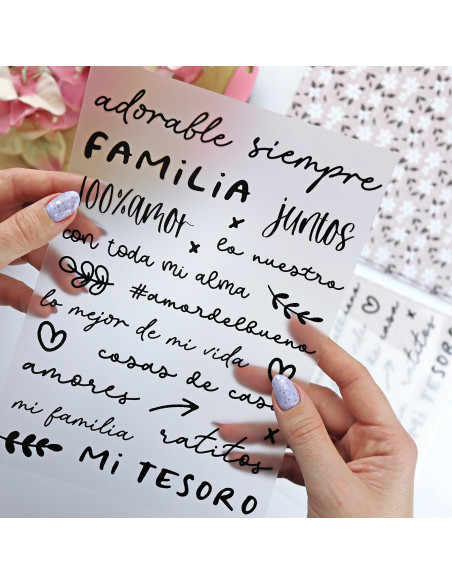 adorable siempre
FAMILIA
100%amor x juntos
x lo nuestro
con toda mi alma
#amordelbueno
lo mejor de mi vida
cosas de casa
amores
mi familia ratitos x
MI TESORO
ratitos
TESORO